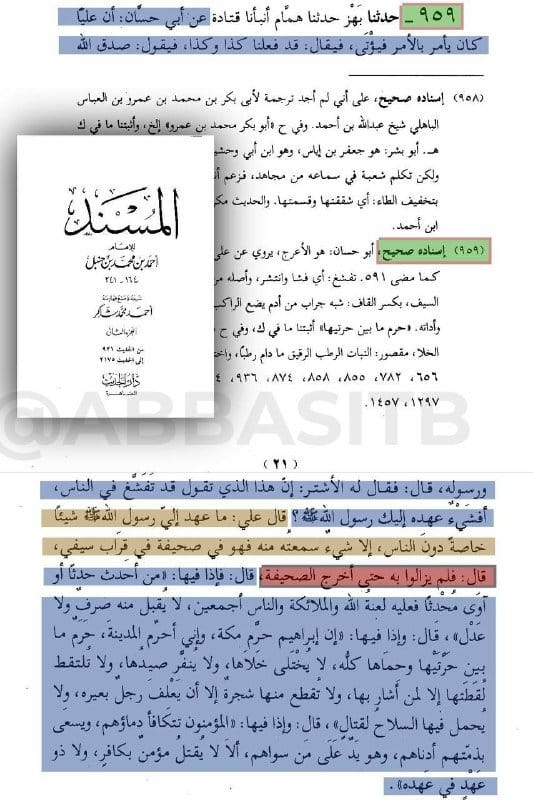 ٩٥٩ ـ حدثنا بَهْز حدثنا همَّام أنبأنا قتادة عن أبي حسَّان: أن عليًا
كان يأمر بالأمر فيؤتَى، فيقال: قد فعلنا كذا وكذا، فيقول: صدق الله
(٩٥٨) إسناده صحيح، على أني لم أجد ترجمة لأبي بكر بن محمد بن عمرو بن العباس
الباهلي شيخ عبدالله بن أحمد. وفي ح «أبو بكر محمد بن عمرو» إلخ، وأثبتنا ما في ك
هـ. أبو بشر: هو جعفر بن إياس، وهو ابن أبي وحشي
ولكن تكلم شعبة في سماعه من مجاهد، فزعم أنه
بتخفيف الطاء: أي شققتها وقسمتها. والحديث مكر
ابن أحمد.
(٩٥٩) إسناده صحيح، أبو حسان: هو الأعرج، يروي عن علي
كما مضى ٥٩١. تفشغ: أي فشا وانتشر، وأصله من
السيف، بكسر القاف: شبه جراب من أدم يضع الراكب
وأداته. «حرم ما بين حرتيها» أثبتنا ما في ك، وفي ح
الخلا، مقصور: النبات الرطب الرقيق ما دام رطبًا، واخت
٦٥٦، ٧٨٢، ٨٥٥، ٨٥٨، ٨٧٤، ٩٣٦،
١٢٩٧، ١٤٥٧.
المسند
للإمام
أحمد بن محمد بن حنبل
١٦٤ - ٢٤١
شرحه وصنع فهارسه
أحمد محمد شاكر
الجزء الثاني
من الحديث ٩٣١
إلى الحديث ٢١٧٥
دار الحديث
القاهرة
@ABBASITB
(٢١)
ورسوله، قال: فقال له الأشتر: إنّ هذا الذي تقول قد تَفَشَّغ في الناس،
أفشيءٌ عهده إليك رسول اللهﷺ؟ قال علي: ما عهد إليّ رسول اللهﷺ شيئًا
خاصةً دونَ الناس، إلا شيءٌ سمعتُه منه فهو في صحيفة في قِراب سيفي،
قال: فلم يزالوا به حتى أخرج الصحيفة، قال: فإذا فيها: «من أحدث حدثًا أو
آوى مُحْدثًا فعليه لعنةُ الله والملائكة والناس أجمعين، لا يُقبلُ منه صرفٌ ولا
عَدْل»، قال: وإذا فيها: «إن إبراهيم حرَّم مكة، وإني أحرِّم المدينة، حَرَمٌ ما
بين حَرَّتَيْها وحماها كلُّه، لا يُخْتَلَى خَلاها، ولا يُنفَّر صيدُها، ولا تُلتقط
لُقَطَتُها إلا لمن أشار بها، ولا تقطع منها شجرةٌ إلا أن يَعْلفَ رجلٌ بعيره، ولا
يُحمل فيها السلاح لقتال»، قال: وإذا فيها: «المؤمنون تتكافأ دماؤهم، ويسعَى
بذمّتهم أدناهم، وهم يدٌ عَلَى مَن سواهم، ألا لا يُقتلُ مؤمنٌ بكافرٍ، ولا ذو
عَهْدٍ في عَهده».